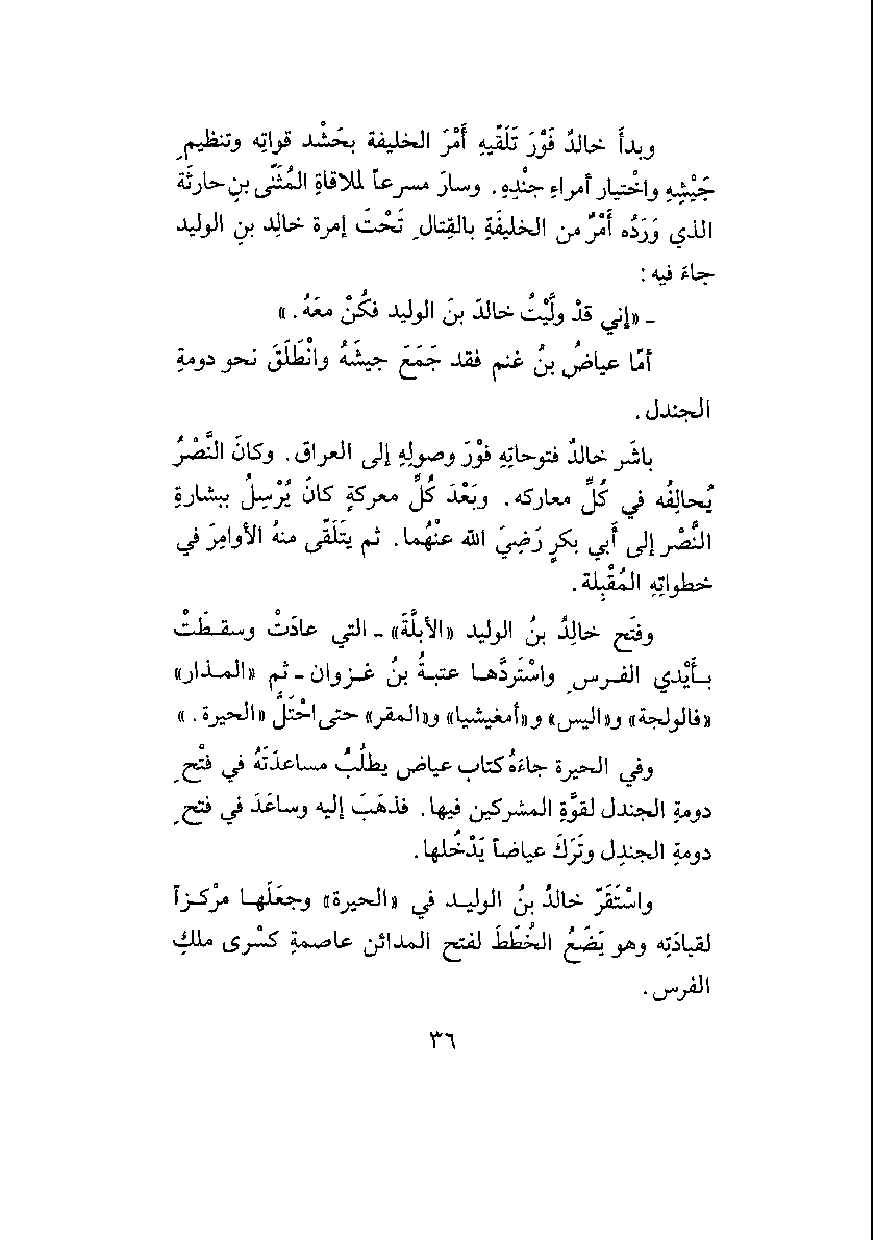 وبدأَ خالدٌ فَوْرَ تَلَقِّيهِ أَمْرَ الخليفة بحَشْد قواتِه وتنظيمِ
جَيْشِهِ واخْتيار أمراءِ جنْدِهِ. وسارَ مسرعاً لملاقاةِ المُثَنّى بنِ حارثَة
الذي وَرَدُه أَمْرٌ من الخليفَةِ بالقِتالِ تَحْتَ إمرة خالِد بنِ الوليد
جاءَ فيه :
ـ «إني قدْ ولَّيْتُ خالدَ بنَ الوليد فكُنْ معَهُ. »
أمّا عياضُ بنُ غنم فقد جَمَعَ جيشَهُ وانْطَلَقَ نحو دومةِ
الجندل.
باشَر خالدٌ فتوحاتِهِ فوْرَ وصولِهِ إلى العراق. وكانَ النَّصْرُ
يُحالِفُه في كُلِّ معاركه. وبَعْدَ كُلِّ معركةٍ كانَ يُرْسِلُ ببشارةِ
النَّصْر إلى أَبي بكرٍ رَضِيَ الله عنْهُما. ثم يتَلَقّى منهُ الأوامِرَ في
خطواتِهِ المُقْبِلة.
وفتَح خالِدُ بنُ الوليد «الأبلَّةَ» ـ التي عادَتْ وسقـطَتْ
بـأَيْدي الفـرسِ واسْتَردَّهـا عتبـةُ بنُ غـزوان ـ ثم «المـذار»
«فالولجة» و«اليس» و«أمغيشيا» و«المقر» حتى احْتَلَّ «الحيرة. »
وفي الحيرة جاءَهُ كتاب عياض يطلُبُ مساعدَتَهُ في فتْحِ
دومةِ الجندل لقوَّةِ المشركين فيها. فذهَبَ إليه وساعَدَ في فتحِ
دومةِ الجندِل وتَرَكَ عياضاً يَدْخُلها.
واسْتَقَرّ خالدُ بنُ الوليـد في «الحيرة» وجعَلَهـا مرْكـزاً
لقيادَتِه وهو يَضَعُ الخُطَطَ لفتح المدائن عاصمةِ كسْرى ملكِ
الفرس.
٣٦